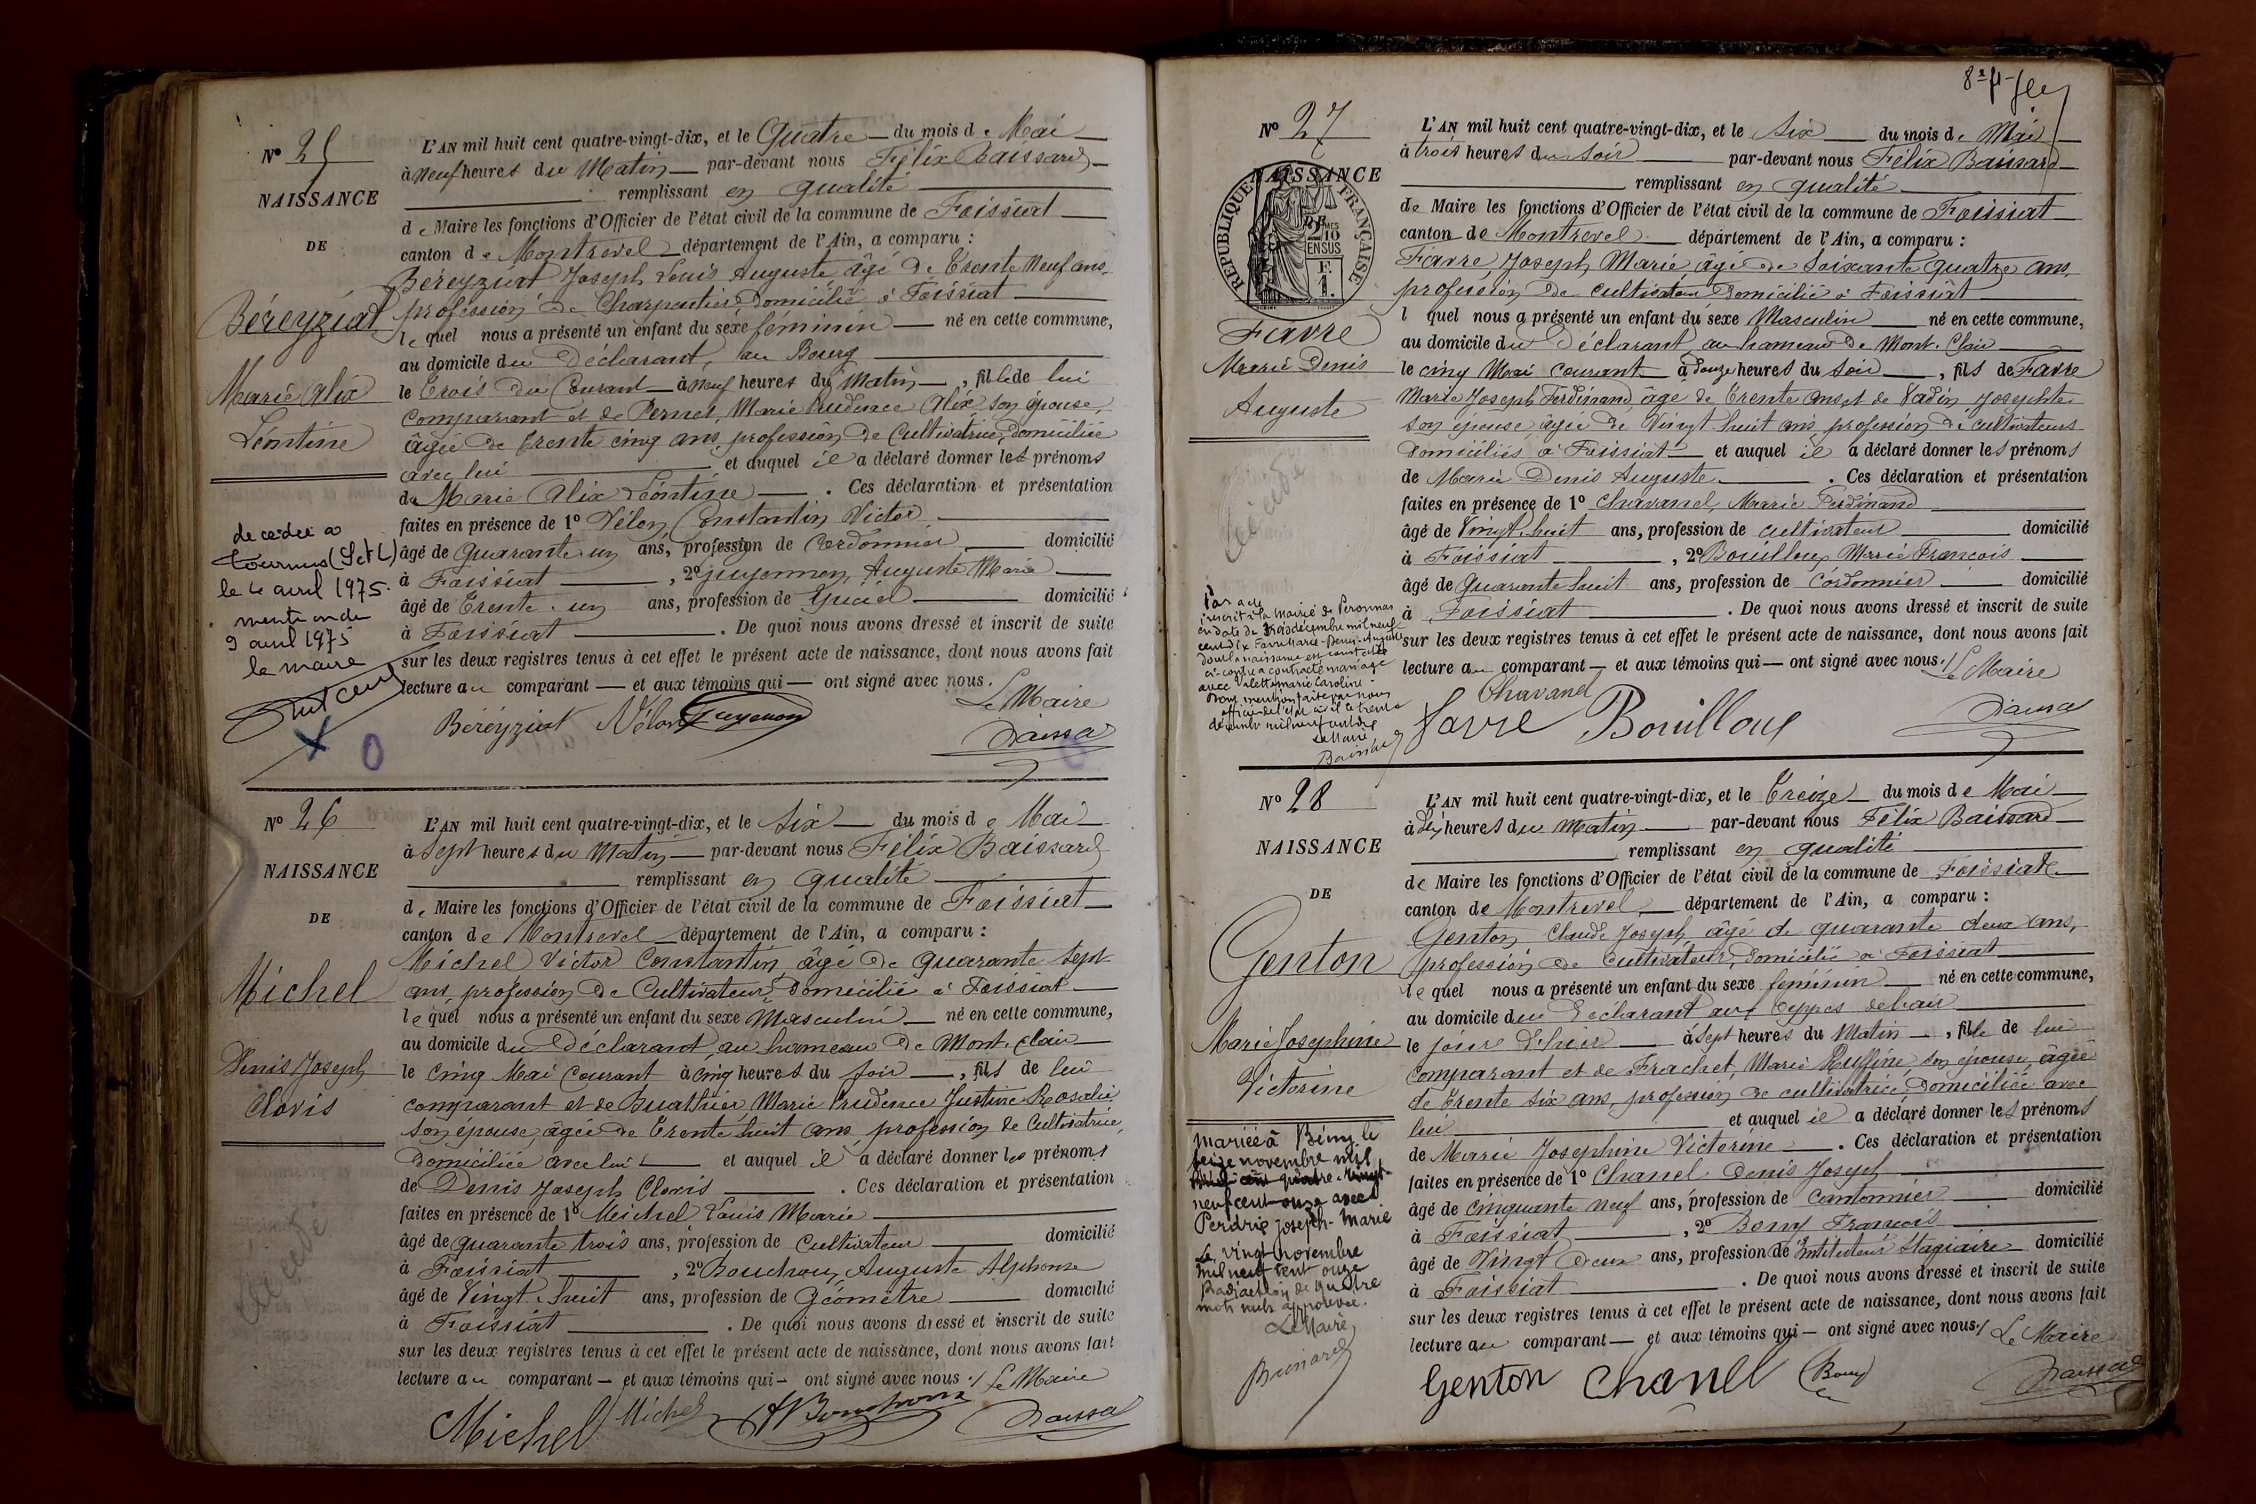 Nº 25
NAISSANCE
DE
Béreyziat
Marie Alix
Léontine
décédée à
Tournus (S et L)
le 4 avril 1975.
mention du
9 avril 1975
le maire
L'AN mil huit cent quatre-vingt-dix, et le Quatre du mois de Mai
à Neuf heures du Matin par-devant nous Félix Baissard
remplissant en qualité
de Maire les fonctions d'Officier de l'état civil de la commune de Foissiat
canton de Montrevel département de l'Ain, a comparu :
Béreyziat Joseph Louis Auguste âgé de Trente Neuf ans,
profession de Charpentier Domicilié à Foissiat
lequel nous a présenté un enfant du sexe féminin né en cette commune,
au domicile du Déclarant, au Bourg
le Trois du Courant à neuf heures du Matin, fille de lui
comparant et de Pernet, Marie Prudence Alix son épouse,
âgée de trente cinq ans, profession de Cultivatrice, Domiciliée
avec lui et auquel il a déclaré donner les prénoms
de Marie Alix Léontine . Ces déclaration et présentation
faites en présence de 1º Vélon Constantin Victor
âgé de Quarante un ans, profession de Cordonnier domicilié
à Foissiat , 2º Guyennon, Auguste Marie
âgé de Trente un ans, profession de domicilié
à Foissiat . De quoi nous avons dressé et inscrit de suite
sur les deux registres tenus à cet effet le présent acte de naissance, dont nous avons fait
lecture au comparant et aux témoins qui ont signé avec nous.
Le Maire
Béréyziat Vélon Guyenon Baissard
Nº 26
NAISSANCE
DE
Michel
Denis Joseph
Clovis
Décédé
L'AN mil huit cent quatre-vingt-dix, et le Six du mois de Mai
à Sept heures du Matin par-devant nous Félix Baissard
remplissant en qualité
de Maire les fonctions d'Officier de l'état civil de la commune de Foissiat
canton de Montrevel département de l'Ain, a comparu :
Michel Victor Constantin, âgé de Quarante sept
ans, profession de Cultivateur, Domicilié à Foissiat
lequel nous a présenté un enfant du sexe Masculin né en cette commune,
au domicile du Déclarant, au hameau de Mont-Clair
le Cinq Mai Courant à cinq heures du Soir , fils de lui
comparant et de Buathier Marie Prudence Justine Rosalie
son épouse, âgée de Trente huit ans, profession de Cultivatrice,
Domiciliée avec lui et auquel il a déclaré donner les prénoms
de Denis Joseph Clovis . Ces déclaration et présentation
faites en présence de 1º Michel Louis Marie
âgé de quarante trois ans, profession de Cultivateur domicilié
à Foissiat , 2º Bouchoux, Auguste Alphonse
âgé de Vingt huit ans, profession de Géomètre domicilié
à Foissiat . De quoi nous avons dressé et inscrit de suite
sur les deux registres tenus à cet effet le présent acte de naissance, dont nous avons fait
lecture au comparant et aux témoins qui ont signé avec nous ./ Le Maire
Michel Michel ABouchoux Baissard
Nº 27
RÉPUBLIQUE FRANÇAISE
2/10
EN SUS
F.
1.
NAISSANCE
DE
Favre
Marie Denis
Auguste
Décédé
Par acte
inscrit à la mairie de Péronnas
en date du décembre mil neuf
cent dix Favre Marie-Denis-Auguste
dont la naissance est constatée
ci-contre a contracté mariage
avec Valette Marie Caroline.
Dont mention faite par nous
officier de l'état civil le trente
décembre mil neuf cent dix
Le Maire
Baissard
L'AN mil huit cent quatre-vingt-dix, et le Six du mois de Mai
à trois heures du soir par-devant nous Félix Baissard
remplissant en qualité
de Maire les fonctions d'Officier de l'état civil de la commune de Foissiat
canton de Montrevel département de l'Ain, a comparu :
Favre, Joseph Marie, âgé de Soixante quatre ans,
profession de cultivateur, Domicilié à Foissiat
l quel nous a présenté un enfant du sexe Masculin né en cette commune,
au domicile du Déclarant au hameau de Mont-Clair
le cinq Mai courant à Douze heures du soir , fils de Favre
Marie Joseph Ferdinand, âgé de Trente ans, et de Vadin Josephte
son épouse, âgée de Vingt huit ans, profession de cultivateurs
Domiciliés à Foissiat et auquel il a déclaré donner les prénoms
de Marie Denis Auguste . Ces déclaration et présentation
faites en présence de 1º Chavanel, Marie Ferdinand
âgé de Vingt huit ans, profession de cultivateur domicilié
à Foissiat , 2º Bouilloux Marie François
âgé de Quarante huit ans, profession de Cordonnier domicilié
à Foissiat . De quoi nous avons dressé et inscrit de suite
sur les deux registres tenus à cet effet le présent acte de naissance, dont nous avons fait
lecture au comparant et aux témoins qui ont signé avec nous ./ Le Maire
Chavanel
Favre Bouilloux Baissard
Nº 28
NAISSANCE
DE
Genton
Marie Josephine
Victorine
mariée à Bény le
seize novembre mil
neuf cent onze avec
Perdrix Joseph-Marie
Le vingt novembre
mil neuf cent onze
Radiation de quatre
mots nuls approuvée.
Le Maire,
L'AN mil huit cent quatre-vingt-dix, et le Treize du mois de Mai
à dix heures du Matin par-devant nous Félix Baissard
remplissant en qualité
de Maire les fonctions d'Officier de l'état civil de la commune de Foissiat
canton de Montrevel département de l'Ain, a comparu :
Genton Claude Joseph, âgé de quarante deux ans,
profession de Cultivateur, Domicilié à Foissiat
lequel nous a présenté un enfant du sexe féminin né en cette commune,
au domicile du Déclarant aux
le jour d'hier à Sept heures du Matin , fille de lui
comparant et de Frachet, Marie Ruffine son épouse, âgée
de Trente six ans, profession de cultivatrice, Domiciliée avec
lui et auquel il a déclaré donner les prénoms
de Marie Josephine Victorine . Ces déclaration et présentation
faites en présence de 1º Chanel Denis Joseph
âgé de cinquante neuf ans, profession de Cantonnier domicilié
à Foissiat , 2º Bony François
âgé de Vingt Deux ans, profession de Instituteur Stagiaire domicilié
à Foissiat . De quoi nous avons dressé et inscrit de suite
sur les deux registres tenus à cet effet le présent acte de naissance, dont nous avons fait
lecture au comparant et aux témoins qui ont signé avec nous ./ Le Maire
Genton Chanel Bony Baissard